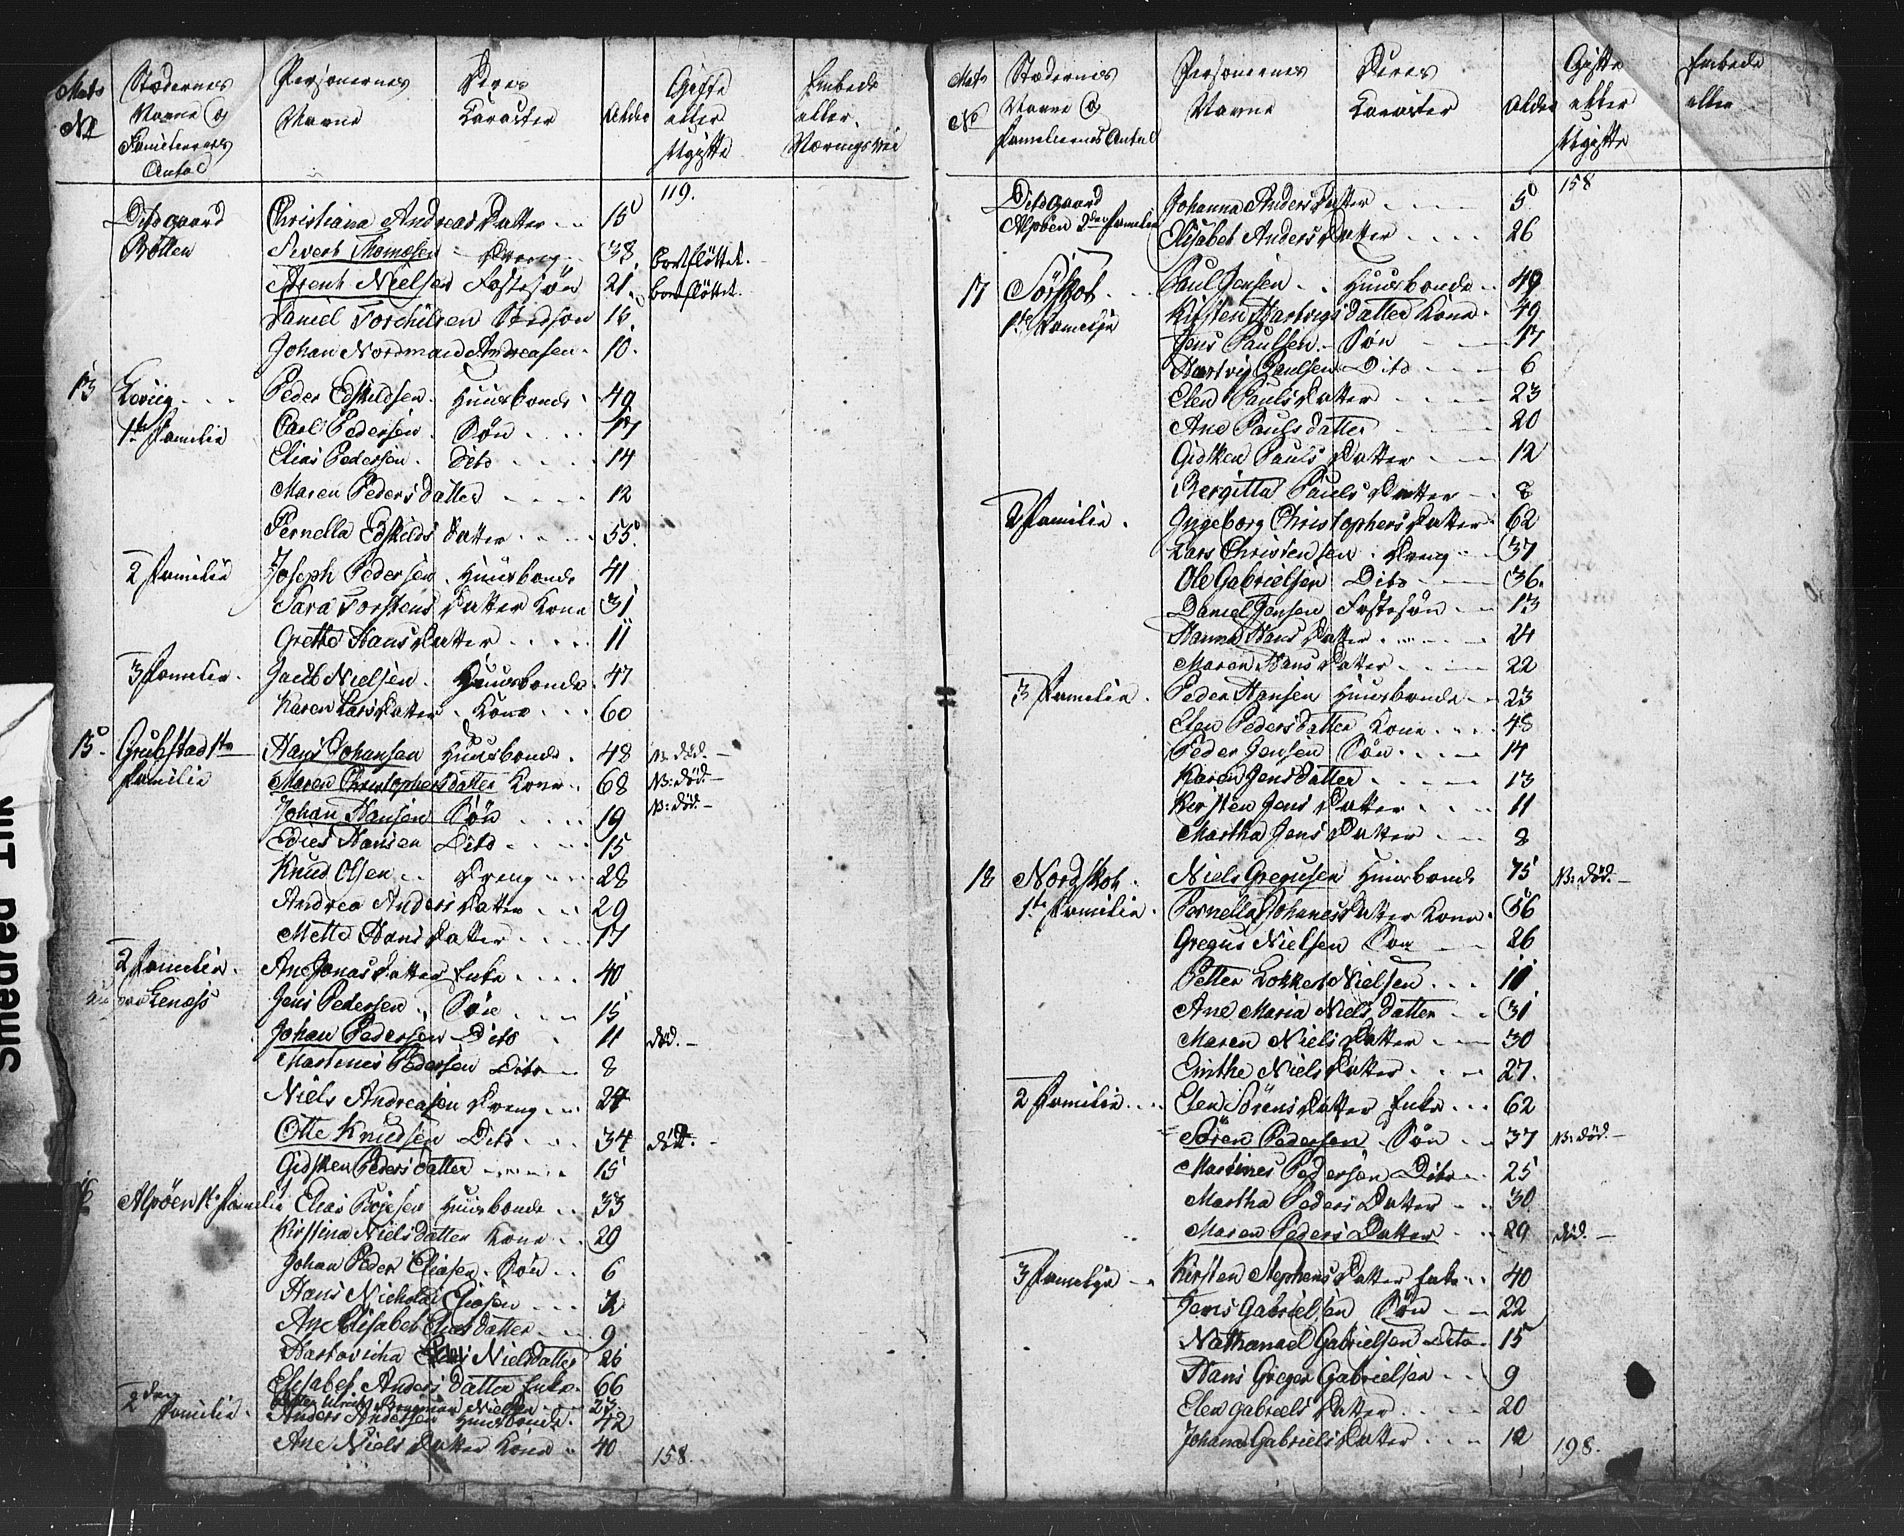 Mats No | Stædernes Navne og Familiernes Antal | Personernes Navne | Deres Karakter | Alder | Gifte eller Ugifte | Embede eller Næringsvei
119.
Distgaard Christiana Andreas Datter 15
Botten Sivert Thomæsen Dreng 38 bortfløttet.
Arent Nielsen Fostesön 21 bortfløttet.
Daniel Torchilsen 16
Johan Nordman Andreasen 10
13 Peder Edskildsen Huusbonde 49
1te Familie Carl Pedersen Sön 17
Elias Pedersen Dito 14
Maren Peders datter 12
Pernella Edskilds Datter 55
2 Familie Joseph Pedersen Huusbonde 41
Sara Torstens Datter Kone 31
Grethe Hans Datter 11
3 Familie Jacob Nielsen Huusbonde 47
Karen Lars Datter Kone 60
15 Grubstad 1te Familie Hans Johansen Huusbonde 48 N: död.
Maren Christophers datter Kone 68 N: död.
Johan Hansen Sön 19 N: död.
Hansen Dito 15
Knud Olsen Dreng 28
Andrea Anders Datter 29
Mette Hans Datter 17
2 Familie Ane Jonas Datter Enke 40
Jens Pedersen Sön 15
Johan Pedersen Dito 11 död.
Martinus Pedersen Dito 8
Niels Andreasen Dreng 24
Otte Knudsen Dito 34 död.
Gidsken Peders datter 15
16 Alpöen 1te Familie Elias Huusbonde 33
Kirstina Niels datter Kone 29
Johan Peder Eliasen Sön 6
Hans Nicholai Eliasen
Ane Elisabet Elias datter 9
Niels datter 26
Elisabet Anders datter Enke 66
Nielsen 23
2den Familie Anders Andersen Huusbonde 42
Ane Niels Datter Kone 40
158.
Mats No | Stædernes Navne og Familiernes Antal | Personernes Navne | Deres Karakter | Alder | Gifte eller Ugifte | Embede eller
158
Distgaard Johanna Anders Datter 5
Alpöen 2den Familie Elisabet Anders Datter 26
17 Sörskot Paul Jensen Huusbonde 49
1te Familie Kirsten Hartvigs datter Kone 49
Jens Paulsen Sön 17
Hartvig Paulsen Dito 6
Elen Pauls Datter 23
Ane Pauls datter 20
Gidsken Pauls Datter 12
Bergitta Pauls Datter 8
2 Familie Ingeborg Christophers Datter 62
Lars Christensen Dreng 37
Ole Gabrielsen Dito 36
Daniel Jensen Fostesön 13
Hanna Hans Datter 24
Maren Hans Datter 22
3 Familie Peder Hansen Huusbonde 23
Elen Peders datter Kone 48
Peder Jensen Sön 14
Karen Jens datter 13
Kirsten Jens Datter 11
Martha Jens Datter 8
18 Nordskot Niels Gregusen Huusbonde 75 N: död.
1te Familie Pernella Johanes Datter Kone 56
Gregus Nielsen Sön 26
Petter Lokkert Nielsen 11
Ane Maria Niels datter 31
Maren Niels Datter 30
Niels Datter 27
2 Familie Elen Sörens Datter Enke 62
Sören Pedersen Sön 37 N: död.
Martines Pedersen Dito 25
Martha Peders Datter 30
Maren Peders Datter 29 död.
3 Familie Kirsten Stephens Datter Enke 40
Jens Gabrielsen Sön 22
Nathanael Gabrielsen Dito 15
Hans Greger Gabrielsen 9
Elen Gabriels Datter 20
Johana Gabriels Datter 12
198.
Smedrød Ink